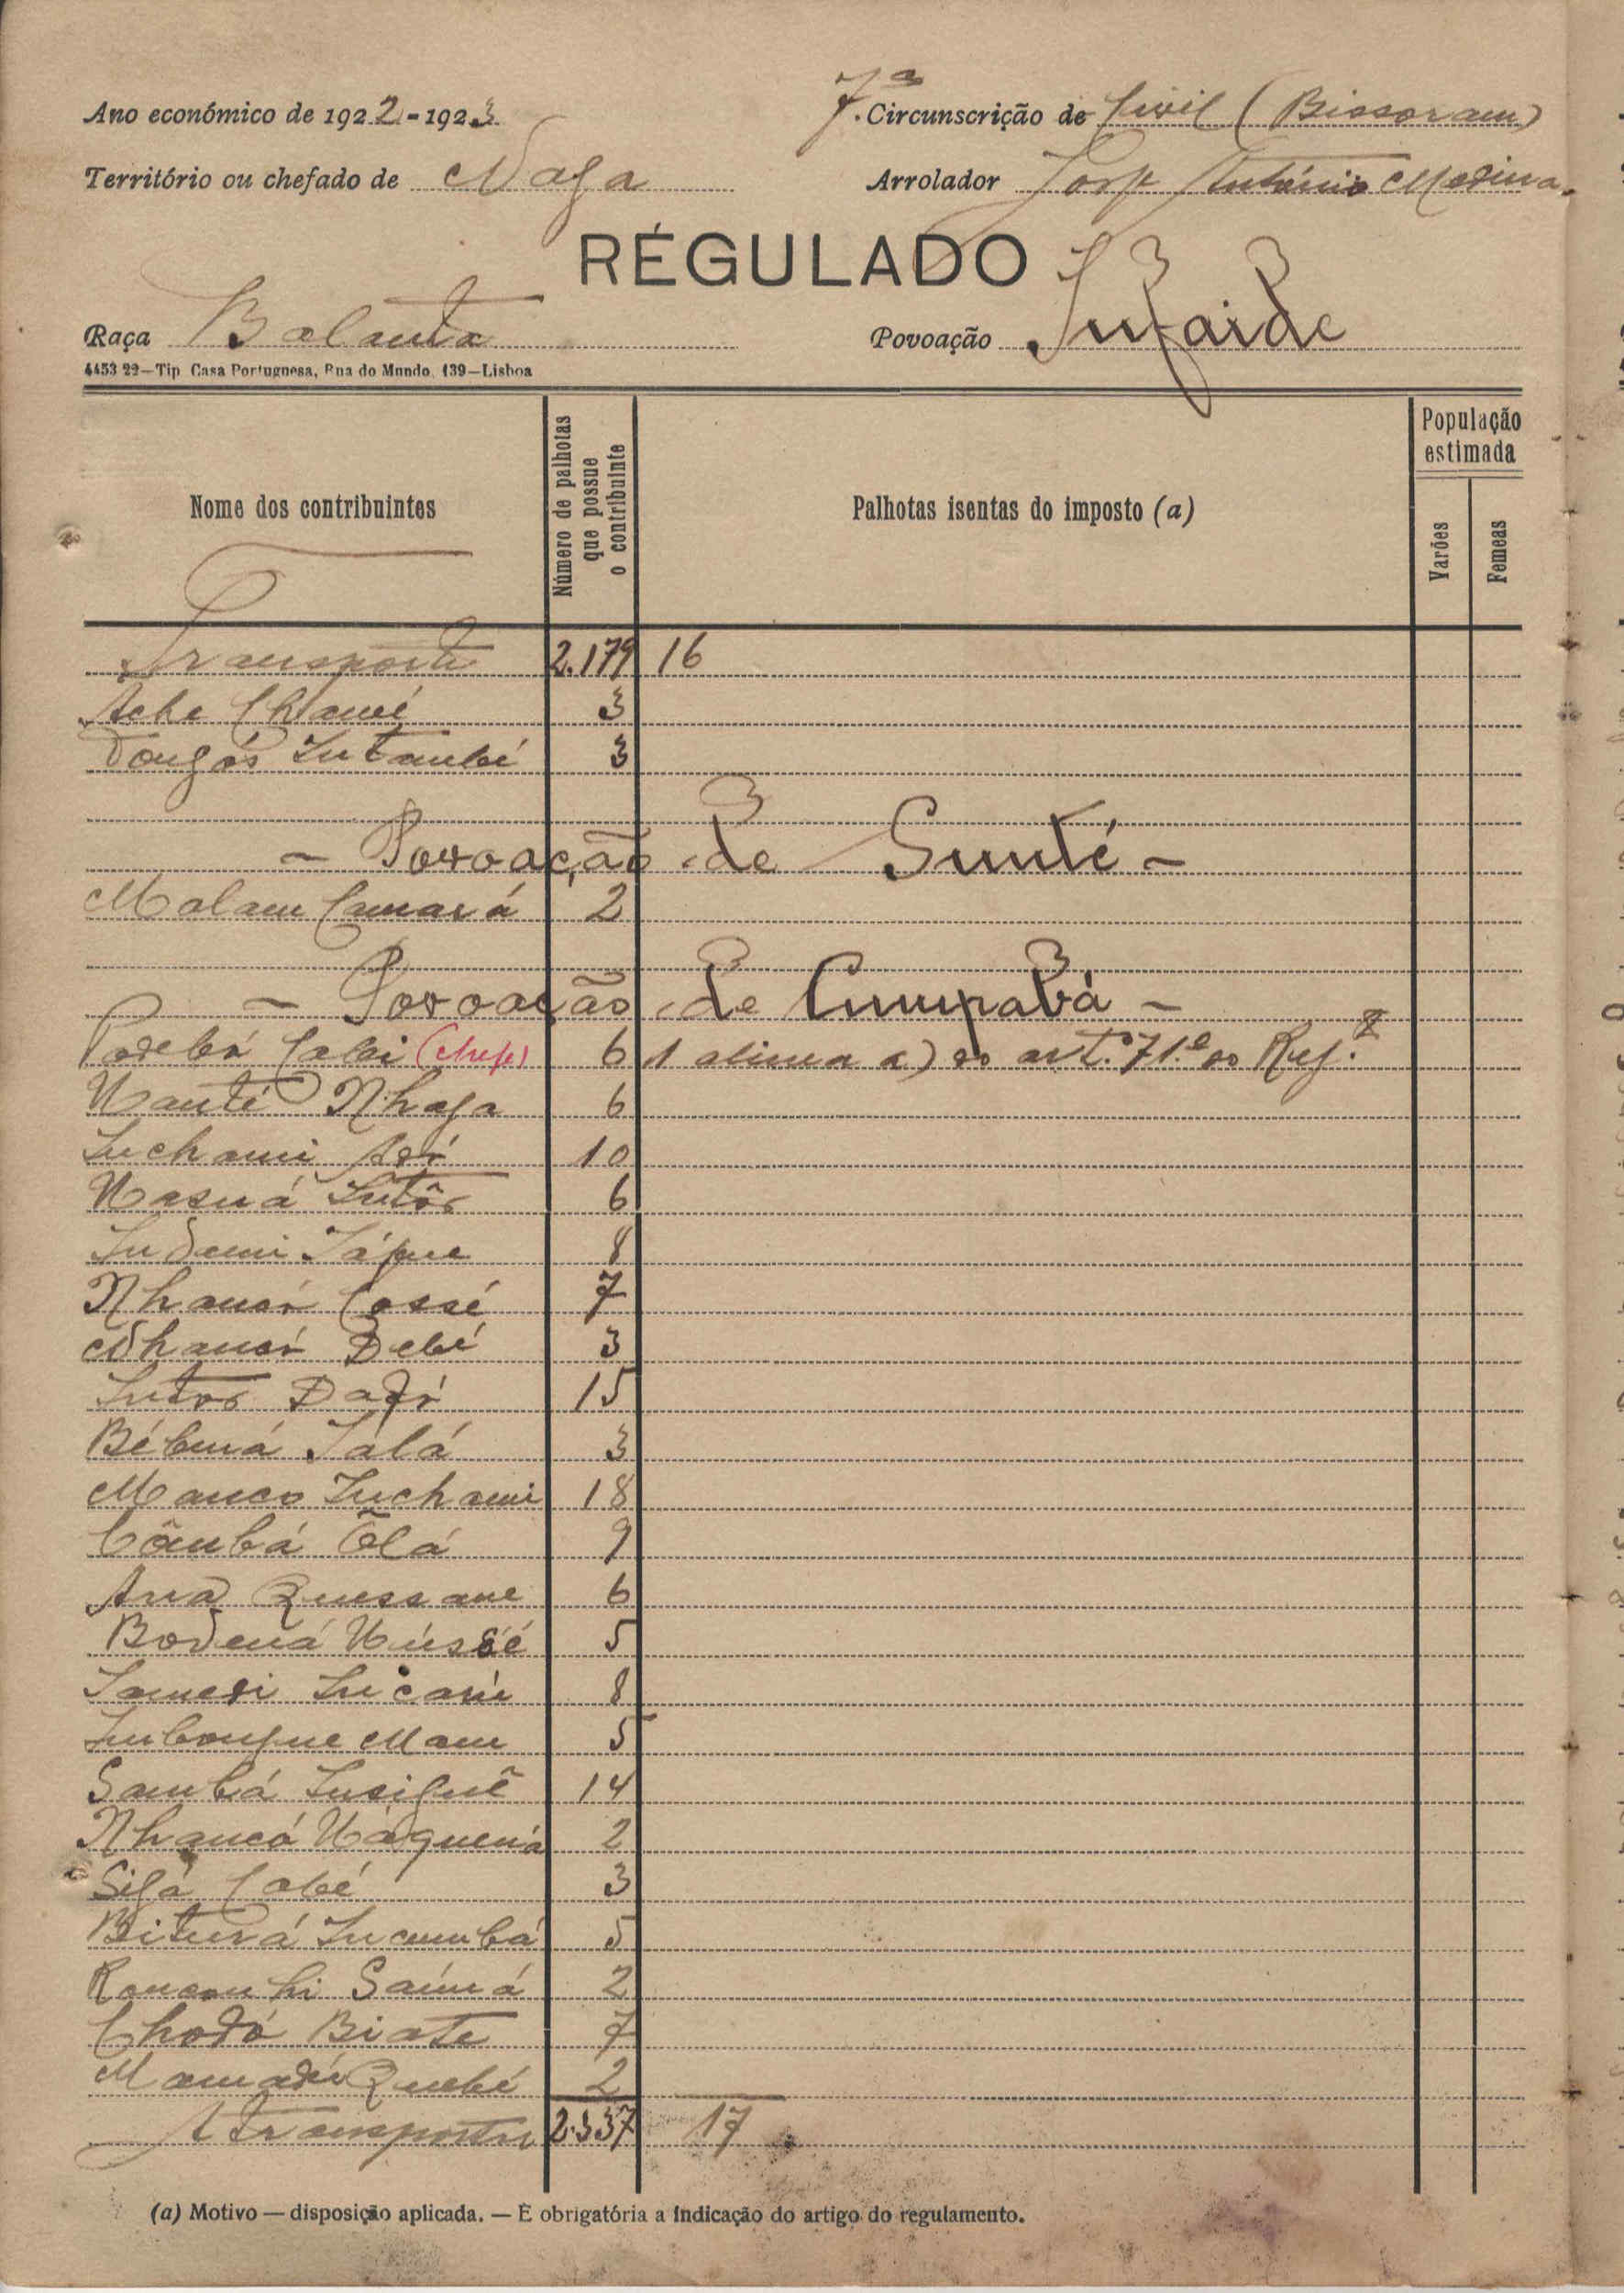 Ano económico de 1922-1923
7.ª Circunscrição de Civil (Bissoram)
Território ou chefado de Naga
Arrolador José António Medina
RÉGULADO
Raça Balanta
Povoação Infaide
4453 22—Tip. Casa Portuguesa, Rua do Mundo, 139—Lisboa
Nome dos contribuintes
Número de palhotas que possue o contribuinte
Palhotas isentas do imposto (a)
População estimada
Varões
Femeas
Transporte 2.179 16
3
3
— Povoação de Sunté —
Malam Camará 2
— Povoação de Cumpabá —
(chefe) 6 1 alinea a) do art.º 71.º do Reg.
Uanté Nhaga 6
Inchami 10
Uasná Intôr 6
8
Nhancó Cossé 7
Nhancó Debé 3
Intor Dafó 15
Bébená Jalá 3
Manco Inchami 18
Cámbá Ólá 9
Ana Quessane 6
Bodená Uússé 5
8
Imbongue Mam 5
Sambá Insiguê 14
Nhancó Uáquená 2
Sifá Cabé 3
Biturá Incumbá 5
Sámá 2
Chodó Biate 7
Mamadú Quebé 2
A transportar 2.337 17
(a) Motivo — disposição aplicada. — É obrigatória a indicação do artigo do regulamento.